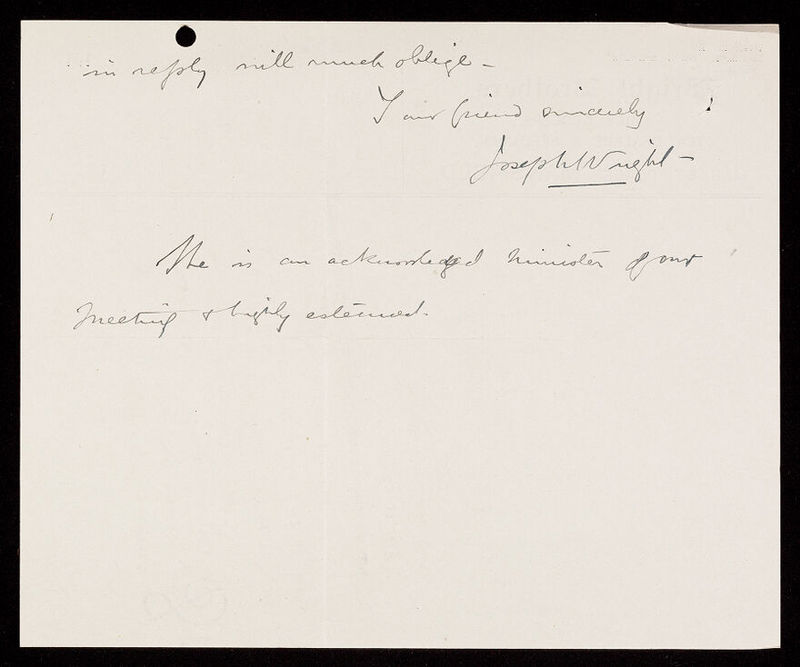 in reply will much oblige -
Your friend sincerely
Joseph Wright -
She is an acknowledged minister of our
meeting & highly esteemed.